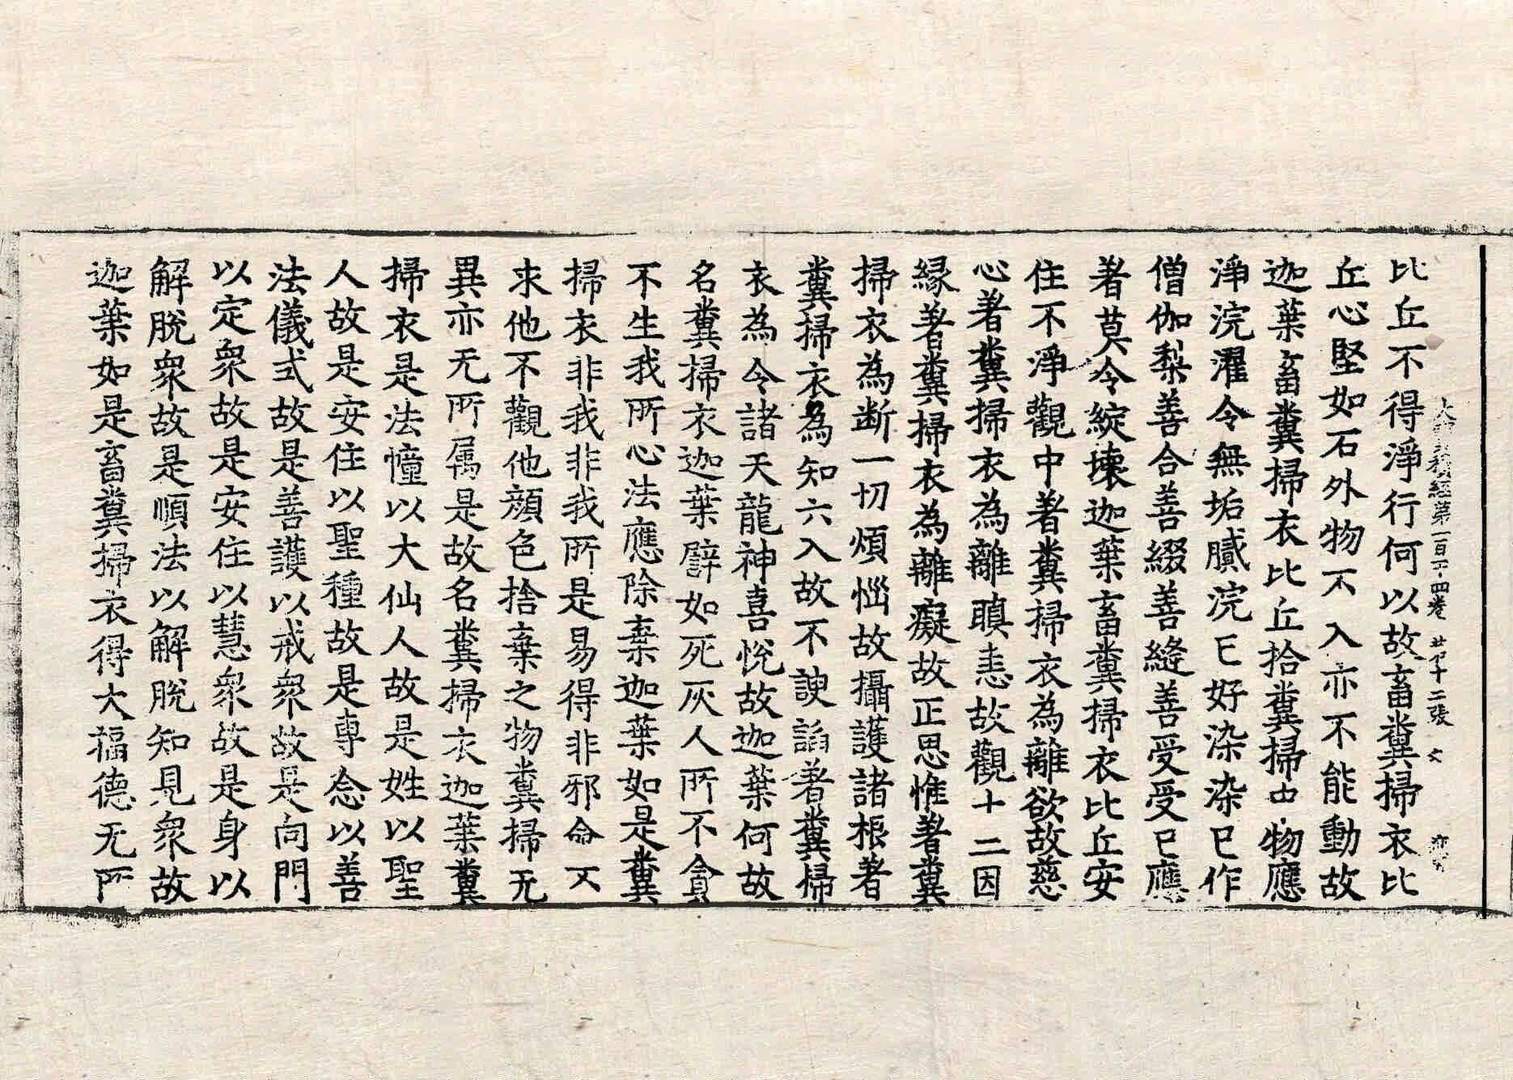 大寶積經第一百十四卷 第十二張 文
比丘不得淨行何以故畜糞掃衣比
丘心堅如石外物不入亦不能動故
迦葉畜糞掃衣比丘拾糞掃中物應
淨浣濯令無垢膩浣已好染染已作
僧伽梨善合善綴善縫善受受已應
著莫令綻壞迦葉畜糞掃衣比丘安
住不淨觀中著糞掃衣為離欲故慈
心著糞掃衣為離瞋恚故觀十二因
縁著糞掃衣為離癡故正思惟著糞
掃衣為断一切煩惱故攝護諸根著
糞掃衣為知六入故不諛諂著糞掃
衣為令諸天龍神喜悅故迦葉何故
名糞掃衣迦葉譬如死灰人所不貪
不生我所心法應除棄迦葉如是糞
掃衣非我非我所是易得非邪命不
求他不觀他顔色捨棄之物糞掃无
異亦无所属是故名糞掃衣迦葉糞
掃衣是法憧以大仙人故是姓以聖
人故是安住以聖種故是專念以善
法儀式故是善護以戒衆故是向門
以定衆故是安住以慧衆故是身以
解脫衆故是順法以解脫知見衆故
迦葉如是畜糞掃衣得大福德无所